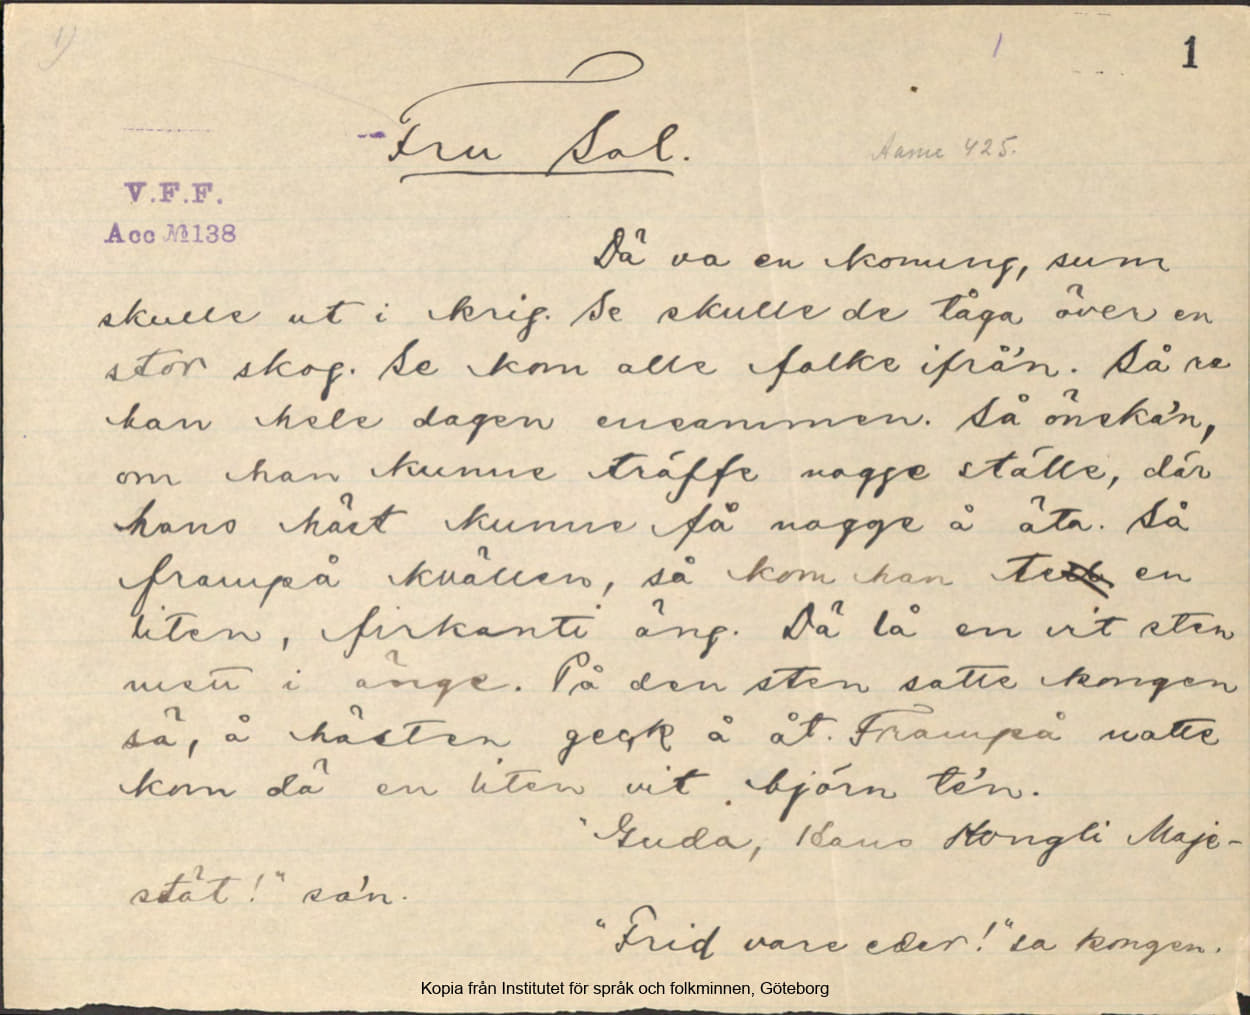 1)
1
1
Fru Sol.
Aarne 425.
V.F.F.
Acc № 138
Dä va en konung, sum
skulle ut i krig. Se skulle de tåga över en
stor skog. Se kom alle folke ifrå'n. Så re
han hele dagen ensammen. Så önska'n,
om han kunne träffe nagge ställe, där
hans häst kunne få nagge å äta. Så
frampå kvällen, så kom han te en
liten, firkanti äng. Dä lå en vit sten
mett i änge. På den sten satte kongen
sä, å hästen geck å åt. Frampå natte
kom dä en liten vit björn te'n.
"Guda, Hans Kongli Maje-
stät!" sa'n.
"Frid vare eder!" sa kongen.
Kopia från Institutet för språk och folkminnen, Göteborg